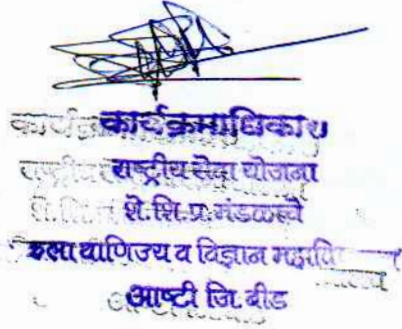 कार्यक्रमाधिकारी
राष्ट्रीय सेवा योजना
शे.शि.प्र.मंडळाचे
कला वाणिज्य व विज्ञान
आष्टी जि.बीड